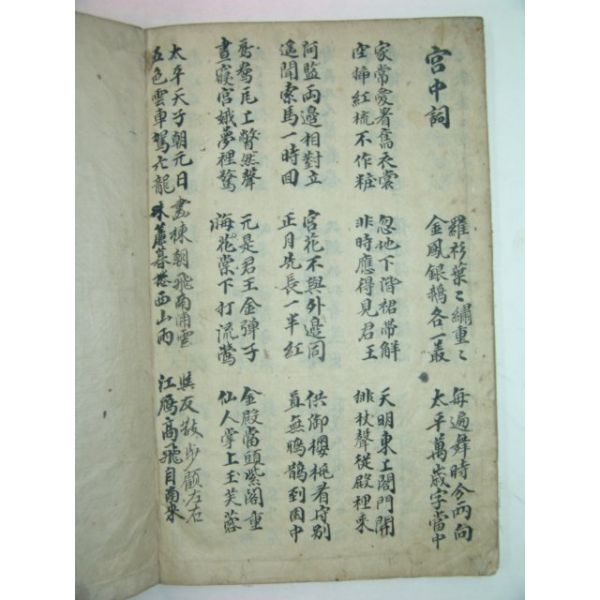 宮中詞
羅衫葉〻繡重〻
金鳳銀鵝各一叢
每遍舞時分兩向
太平萬歲字當中
家常愛着舊衣裳
空揷紅梳不作粧
忽地下階裙帶解
非時應得見君王
天明東上閤門開
排杖聲從殿裡來
阿監兩邊相對立
遙聞索馬一時回
宮花不與外邊同
正月先長一半紅
供御櫻桃看守別
直無鴉鵲到園中
鴛鴦瓦上瞥然聲
晝寢宮娥夢裡驚
元是君王金彈子
海花棠下打流鶯
金殿當頭紫閣重
仙人掌上玉芙蓉
太平天子朝元日
五色雲車駕六龍
畵棟朝飛南浦雲
珠簾暮捲西山雨
與友散步顧左右
江鴈高飛自南來